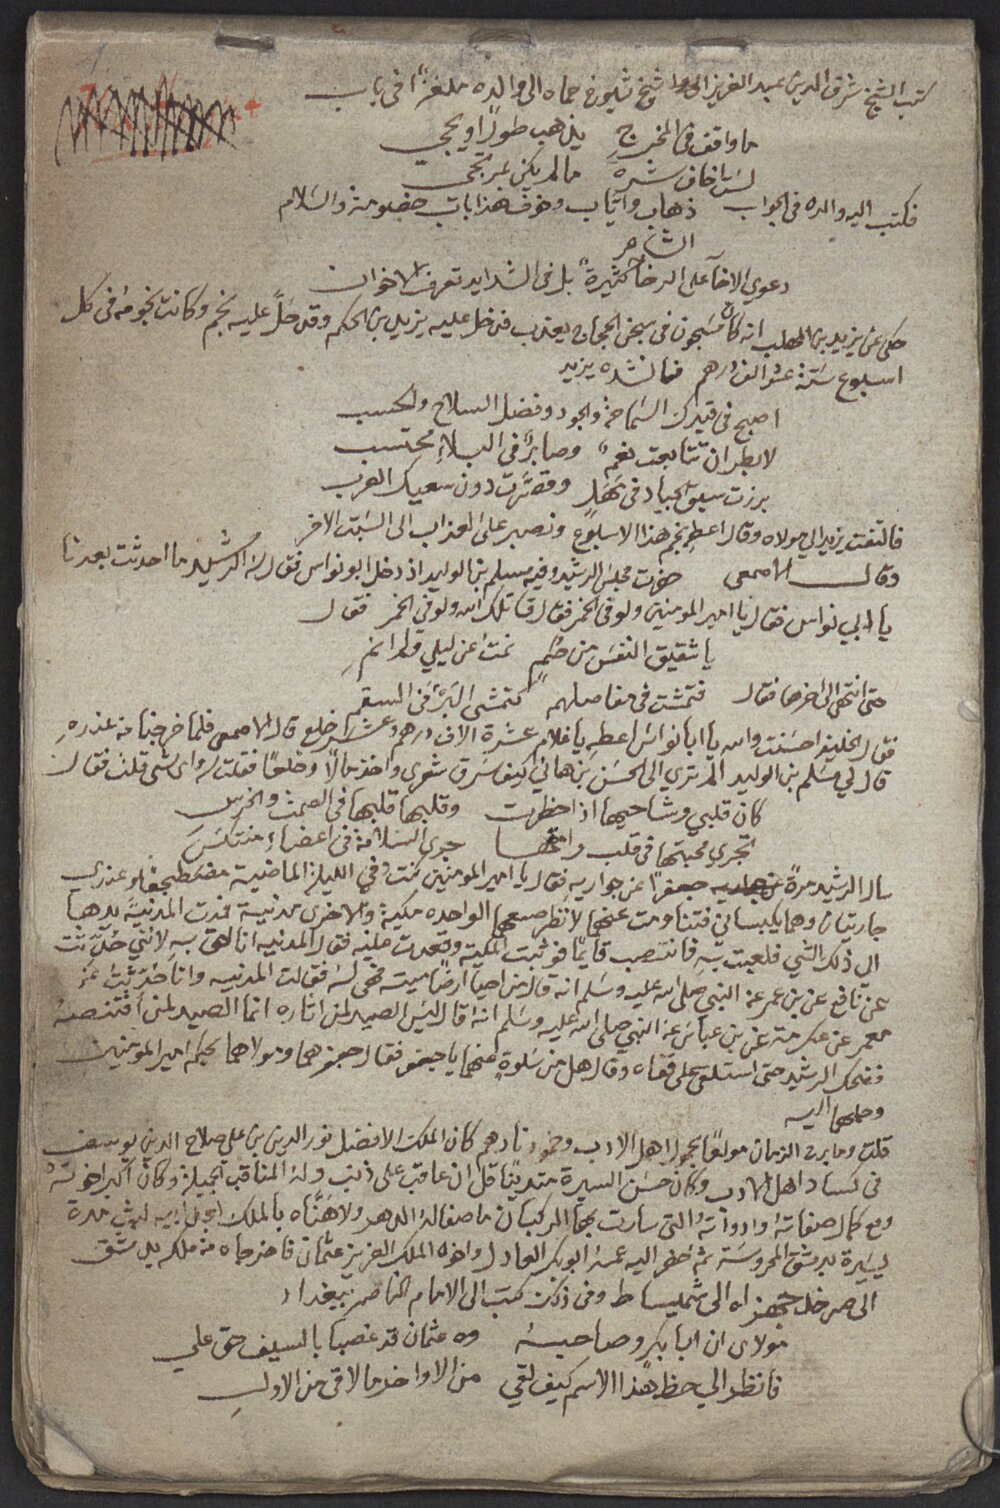 كتب الشيخ شرف الدين عبد العزيز الى شيخ شيوخ حماه الى والده ملغزًا فى باب
ما واقف فى المخرج   يذهب طورًا ويجي
لست اخاف شره   ما لم يكن بمرتجي
فكتب اليه والده فى الجواب   ذهاب واياب وخوف هذا باب خصومة والسلام
الشاعر
دعوي الاخآ على الرخآ كثيرة   بل فى الشدايد تعرف الاخوان
حكى عن يزيد بن المهلب انه كان مسجون فى سجن الحجاج يعذب فدخل عليه يزيد بن الحكم وقد حلّ عليه نجم وكانت نجومه فى كل
اسبوع ستة عشر الف درهم فانشده يزيد
اصبح فى قيدك السماحة والجود وفضل السلاح والحسب
لا بطر ان تتابعت نعم   وصابر فى البلاء محتسب
برزت سبق الجياد فى مهل   وقصرت دون سعيك العرب
فالتفت يزيد الى مولاه وقال اعطه نجم هذا الاسبوع ونصبر على العذاب الى السبت الاخر
وقال الاصمعى   حضرت مجلس الرشيد وفيه مسلم بن الوليد اذ دخل ابو نواس فقال له الرشيد ما احدثت بعدنا
يا ابي نواس فقال يا امير المومنين ولو فى الخمر فقال قاتلك الله ولو فى الخمر فقال
يا شقيق النفس من حكم   نمت عن ليلي ولم انم
حتى انتهى الى اخرها فقال   فتمشت فى مفاصلهم   كتمشى البرء فى السقم
فقال الخليفه احسنت والله يا ابا نواس اعطه يا غلام عشرة الاف درهم وعشر خلع قال الاصمعى فلما خرجنا من عنده
قال لي مسلم بن الوليد الم تري الى الحسن بن هاني كيف سرق شعري واخذ مالًا وخلعًا فقلت له اى شى قلت فقال
كان قلبي وشاحيها اذا خطرت   وقلبها قلبها فى الصمت والخرس
تجري محبتها فى قلب وامقها   جري السلامة فى اعضاء منتكس
سال الرشيد مرةً جعفرًا عن جواريه فقال يا امير المومنين كنت فى الليلة الماضية مضطجعًا وعندى
جاريتان وهما يكبساني فتناومت عنهما لانظر صنيعهما الواحده مكية والاخرى مدنية فمدت المدنية يدها
الى ذلك الشي فلعبت به فانتصب قايمًا فوثبت المكية وقعدت عليه فقالت المدنيه انا احق به لانني حدّثت
عن نافع عن بن عمر عن النبي صلى الله عليه وسلم انه قال من احيا ارضًا ميتة فهى له فقالت المكية وانا حدثت عن
معمر عن عكرمة عن بن عباس عن النبي صلى الله عليه وسلم انه قال ليس الصيد لمن اثاره انما الصيد لمن اقتنصه
فضحك الرشيد حتى استلقى على قفاه وقال هل من سلوة عنهما يا جعفر فقال جعفر هما ومولاهما بحكم امير المومنين
وحملهما اليه
قلت وما برح الزمان مولعًا بخمول اهل الادب وخمود نارهم كان الملك الافضل نور الدين بن على صلاح الدين يوسف
فى كساد اهل الادب وكان حسن السيرة متدينًا قل ان عاقب على ذنب وله المناقب الجميلة وكان اكبر اخوته
ومع كمال صفاته وادواته والتى سارت بها الركبان ما صفا له الدهر ولا هنّاه بالملك بعد ابيه لبث مدة
يسيرة بدمشق المحروسة ثم حضر اليه عمه ابو بكر العادل واخوه الملك العزيز عثمان فاخرجاه من ملكه بدمشق
الى صرخد ثم جهزاه الى شميساط وفى ذلك كتب الى الامام الناصر ببغداد
مولاى ان ابا بكر وصاحبه   وه عثمان قد غصبا بالسيف حق علي
فانظر الي حظ هذا الاسم كيف لقي   من الاواخر ما لاقى من الاول